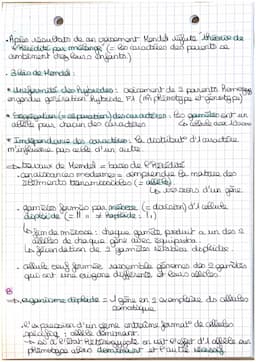 • Après résultats de un croisement Mendel réfute théorie de
l'hérédité par mélange (= les caractères des parents se
combinent chez leurs enfants)
• 3 lois de Mendel :
• Uniformité des hybrides : croisement de 2 parents homozyg
engendre génération hybride F1 (m phénotype et génotype)
(= séparation) des caractères : les gamètes ont un
allèle pour chacun des caractères
• Indépendance des caractères : la distribut° d'1 caractère
n'influence pas celle d'un autre
travaux de Mendel = base de l'hérédité
• connaissances modernes = comprendre la nature des
éléments transmissibles (= allèles)
versions d'un gène
• gamètes formés par méiose (= division) d'1 cellule
diploïde (= II ≠ haploïde : I)
de méiose : chaque gamète produit a un des 2
allèles de chaque gène avec équiproba
fécondation de 2 gamètes rétablies diploïdie.
• cellule œuf formée rassemble génomes des 2 gamètes
qui ont une origine différente et leurs allèles.
B
organisme diploïde = 1 gène en 2 exemplaires ds cellules
somatiques
l'expression d'un gène entraîne format° de
spécifiq : allèle dominant
à l'état hétérozygote on voit l'effet d'1 allèle sur
phénotype alors dominant et l'autre récessif